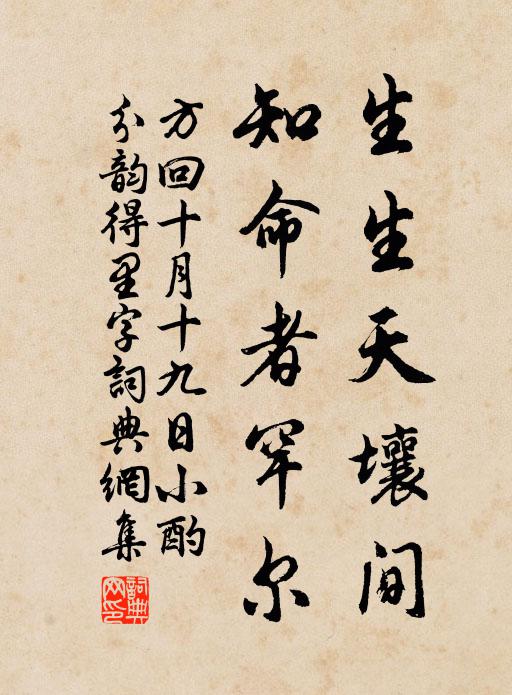 生生天壤间
知命者罕尔
方回十月十九日小酌
分韵得里字詞典網集
詞典
网印